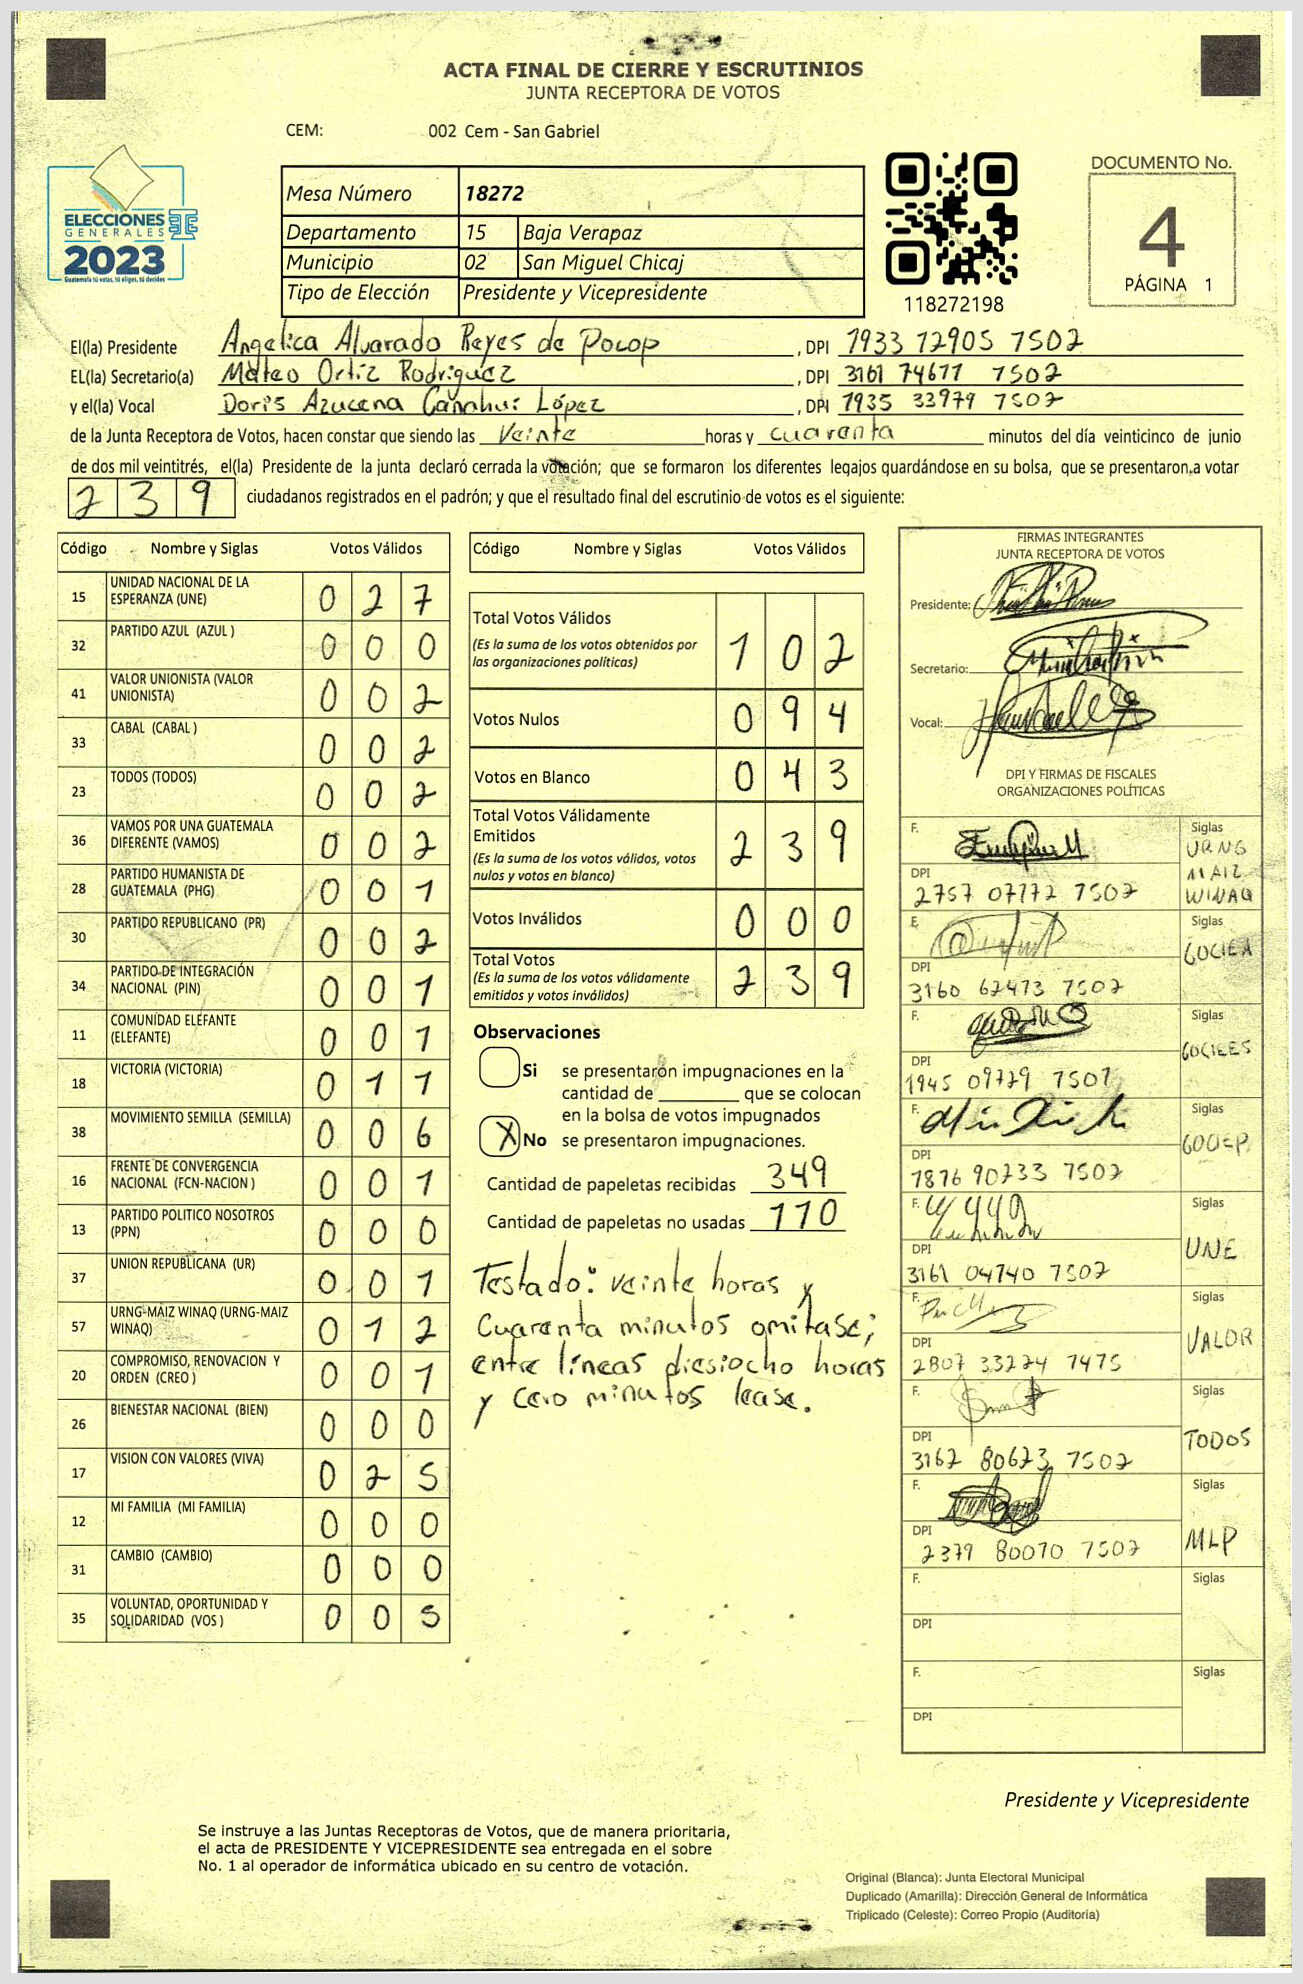 ACTA FINAL DE CIERRE Y ESCRUTINIOS
JUNTA RECEPTORA DE VOTOS
CEM: 002 Cem - San Gabriel
ELECCIONES
GENERALES
2023
Guatemala tú votas, tú eliges, tú decides
Mesa Número 18272
Departamento 15 Baja Verapaz
Municipio 02 San Miguel Chicaj
Tipo de Elección Presidente y Vicepresidente
118272198
DOCUMENTO No.
4
PÁGINA 1
El(la) Presidente Angelica Alvarado Reyes de Pocop, DPI 1933 72905 7502
EL(la) Secretario(a) Mateo Ortiz Rodriguez, DPI 3161 74677 7502
y el(la) Vocal Doris Azucena Canahui López, DPI 1935 33979 7502
de la Junta Receptora de Votos, hacen constar que siendo las veinte horas y cuarenta minutos del día veinticinco de junio
de dos mil veintitrés, el(la) Presidente de la junta declaró cerrada la votación; que se formaron los diferentes legajos guardándose en su bolsa, que se presentaron a votar
239 ciudadanos registrados en el padrón; y que el resultado final del escrutinio de votos es el siguiente:
Código Nombre y Siglas Votos Válidos
15 UNIDAD NACIONAL DE LA ESPERANZA (UNE) 0 2 7
32 PARTIDO AZUL (AZUL ) 0 0 0
41 VALOR UNIONISTA (VALOR UNIONISTA) 0 0 2
33 CABAL (CABAL ) 0 0 2
23 TODOS (TODOS) 0 0 2
36 VAMOS POR UNA GUATEMALA DIFERENTE (VAMOS) 0 0 2
28 PARTIDO HUMANISTA DE GUATEMALA (PHG) 0 0 1
30 PARTIDO REPUBLICANO (PR) 0 0 2
34 PARTIDO DE INTEGRACIÓN NACIONAL (PIN) 0 0 1
11 COMUNIDAD ELEFANTE (ELEFANTE) 0 0 1
18 VICTORIA (VICTORIA) 0 1 1
38 MOVIMIENTO SEMILLA (SEMILLA) 0 0 6
16 FRENTE DE CONVERGENCIA NACIONAL (FCN-NACION ) 0 0 1
13 PARTIDO POLITICO NOSOTROS (PPN) 0 0 0
37 UNION REPUBLICANA (UR) 0 0 1
57 URNG-MAIZ WINAQ (URNG-MAIZ WINAQ) 0 1 2
20 COMPROMISO, RENOVACION Y ORDEN (CREO ) 0 0 1
26 BIENESTAR NACIONAL (BIEN) 0 0 0
17 VISION CON VALORES (VIVA) 0 2 5
12 MI FAMILIA (MI FAMILIA) 0 0 0
31 CAMBIO (CAMBIO) 0 0 0
35 VOLUNTAD, OPORTUNIDAD Y SOLIDARIDAD (VOS ) 0 0 5
Código Nombre y Siglas Votos Válidos
Total Votos Válidos
(Es la suma de los votos obtenidos por
las organizaciones políticas) 1 0 2
Votos Nulos 0 9 4
Votos en Blanco 0 4 3
Total Votos Válidamente
Emitidos
(Es la suma de los votos válidos, votos
nulos y votos en blanco) 2 3 9
Votos Inválidos 0 0 0
Total Votos
(Es la suma de los votos válidamente
emitidos y votos inválidos) 2 3 9
Observaciones
Si se presentarón impugnaciones en la
cantidad de ________ que se colocan
en la bolsa de votos impugnados
X No se presentaron impugnaciones.
Cantidad de papeletas recibidas 349
Cantidad de papeletas no usadas 110
Testado: veinte horas y
Cuarenta minutos omitase;
entre líneas diesiocho horas
y cero minutos lease.
FIRMAS INTEGRANTES
JUNTA RECEPTORA DE VOTOS
Presidente:
Secretario:
Vocal:
DPI Y FIRMAS DE FISCALES
ORGANIZACIONES POLÍTICAS
F. Siglas URNG MAIZ WINAQ
DPI 2757 07772 7502
F. Siglas
DPI 3160 62473 7502
F. Siglas
DPI 1945 09729 7507
F. Siglas
DPI 7876 90233 7502
F. Siglas UNE
DPI 3161 04740 7502
F. Siglas VALOR
DPI 2807 33274 7475
F. Siglas TODOS
DPI 3162 80623 7502
F. Siglas MLP
DPI 2379 80070 7502
F. Siglas
DPI
F. Siglas
DPI
Presidente y Vicepresidente
Se instruye a las Juntas Receptoras de Votos, que de manera prioritaria,
el acta de PRESIDENTE Y VICEPRESIDENTE sea entregada en el sobre
No. 1 al operador de informática ubicado en su centro de votación.
Original (Blanca): Junta Electoral Municipal
Duplicado (Amarilla): Dirección General de Informática
Triplicado (Celeste): Correo Propio (Auditoría)